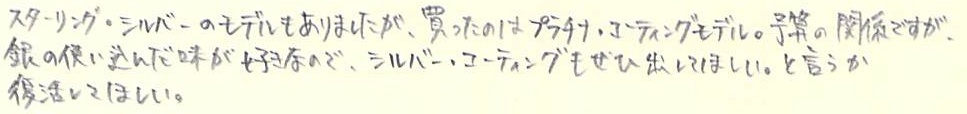 スターリング・シルバーのモデルもありましたが、買ったのはプラチナ・コーティングモデル。予算の関係ですが、
銀の使い込んだ味が好きなので、シルバー・コーティングもぜひ出してほしい。と言うか
復活してほしい。